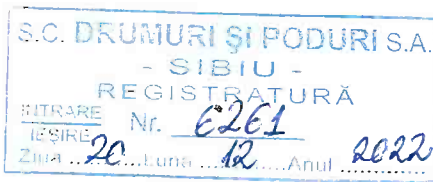 S.C. DRUMURI ȘI PODURI S.A.
- SIBIU -
REGISTRATURĂ
INTRARE
IEȘIRE
Nr. 6261
Ziua ..20....Luna ...12.....Anul .....2022